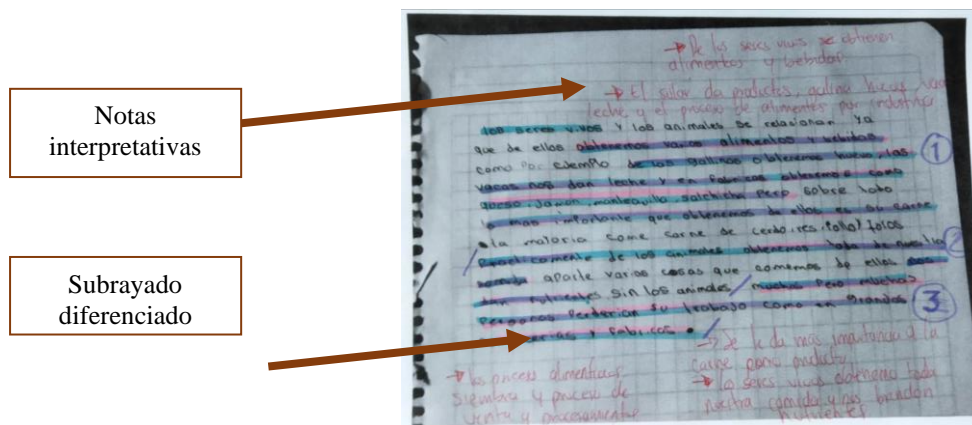 Notas
interpretativas
Subrayado
diferenciado
→ De los seres vivos se obtienen
alimentos y bebidas
→ El solar da productos, gallina huevos, vaca
leche, y el proceso de alimentos por industrias
los seres vivos y los animales se relacionan ya
que de ellos obtenemos varios alimentos y bebidas
como por ejemplo de las gallinas obtenemos huevo, las
vacas nos dan leche y en fabricas obtenemos como
queso, jamon, mantequilla, salchicha pero sobre todo
lo mas importante que obtenemos de ellos es su carne
la malloria come carne de cerdo, res, pollo,
practicamente de los animales obtenemos toda de nuestra
comida aparte varios cosas que comemos de ellos
dan sin los animales mucha pero muchas
personas perderian su trabajo como en grandes
y fabricas.
1
2
3
→ Se le da mas importancia a la
carne como producto
→ los seres vivos obtenemos toda
nuestra comida y nos brindan
nutrientes
→ los proceso alimenticios
siembra y proceso de
venta y procesamiento